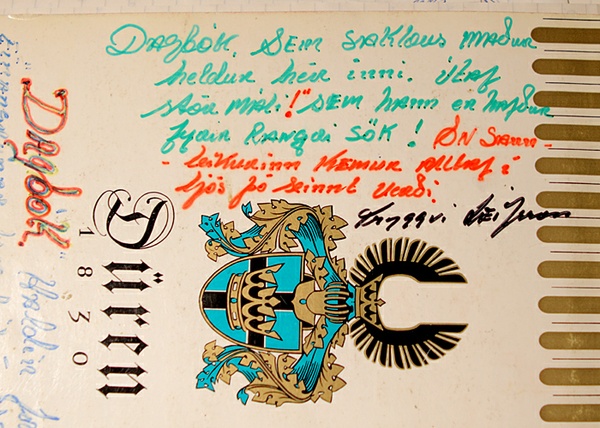 DAGBÓK. SEM SAKlAus MAÐUR
heldur hér inni. ÚtAf
stóR MÁLi!" SEM hann er hAfður
fyRir RANGRi SÖK! EN SANN-
leikurinn KEMUR AlltAf í
ljós þó seinnt verði.
Tryggvi Leifsson
"DAgbóK."
Düren
1830
Haldin